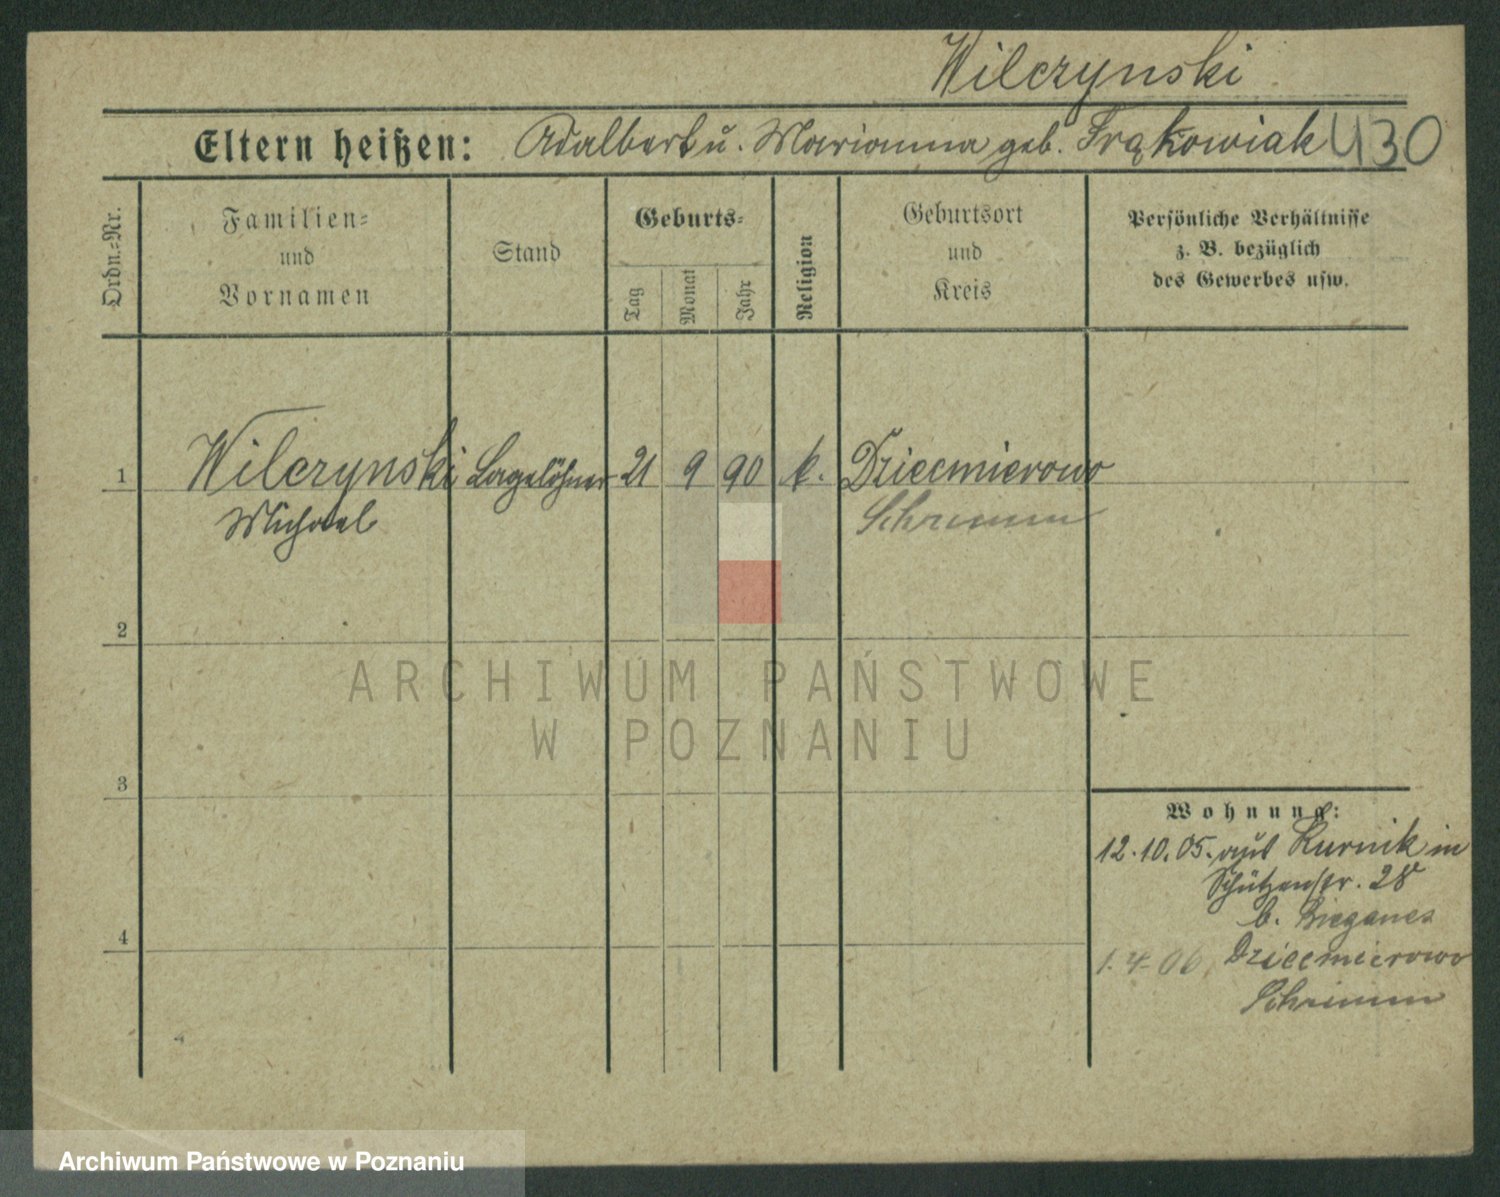 Wilczynski
Eltern heißen: Adalbert u. Marianna geb. Frąkowiak 430
Ordn.-Nr.
Familien-
und
Vornamen
Stand
Geburts-
Tag
Monat
Jahr
Religion
Geburtsort
und
Kreis
Persönliche Verhältnisse
z. B. bezüglich
des Gewerbes usw.
1 Wilczynski Tagelöhner 21 9 90 k. Dziecmierowo
Michael Schrimm
2
3
4
Wohnung:
12.10.05. aus Kurnik in
Schützenstr. 28
b. Bieganes
1.4.06 Dziecmierowo
Schrimm
ARCHIWUM PAŃSTWOWE
W POZNANIU
Archiwum Państwowe w Poznaniu